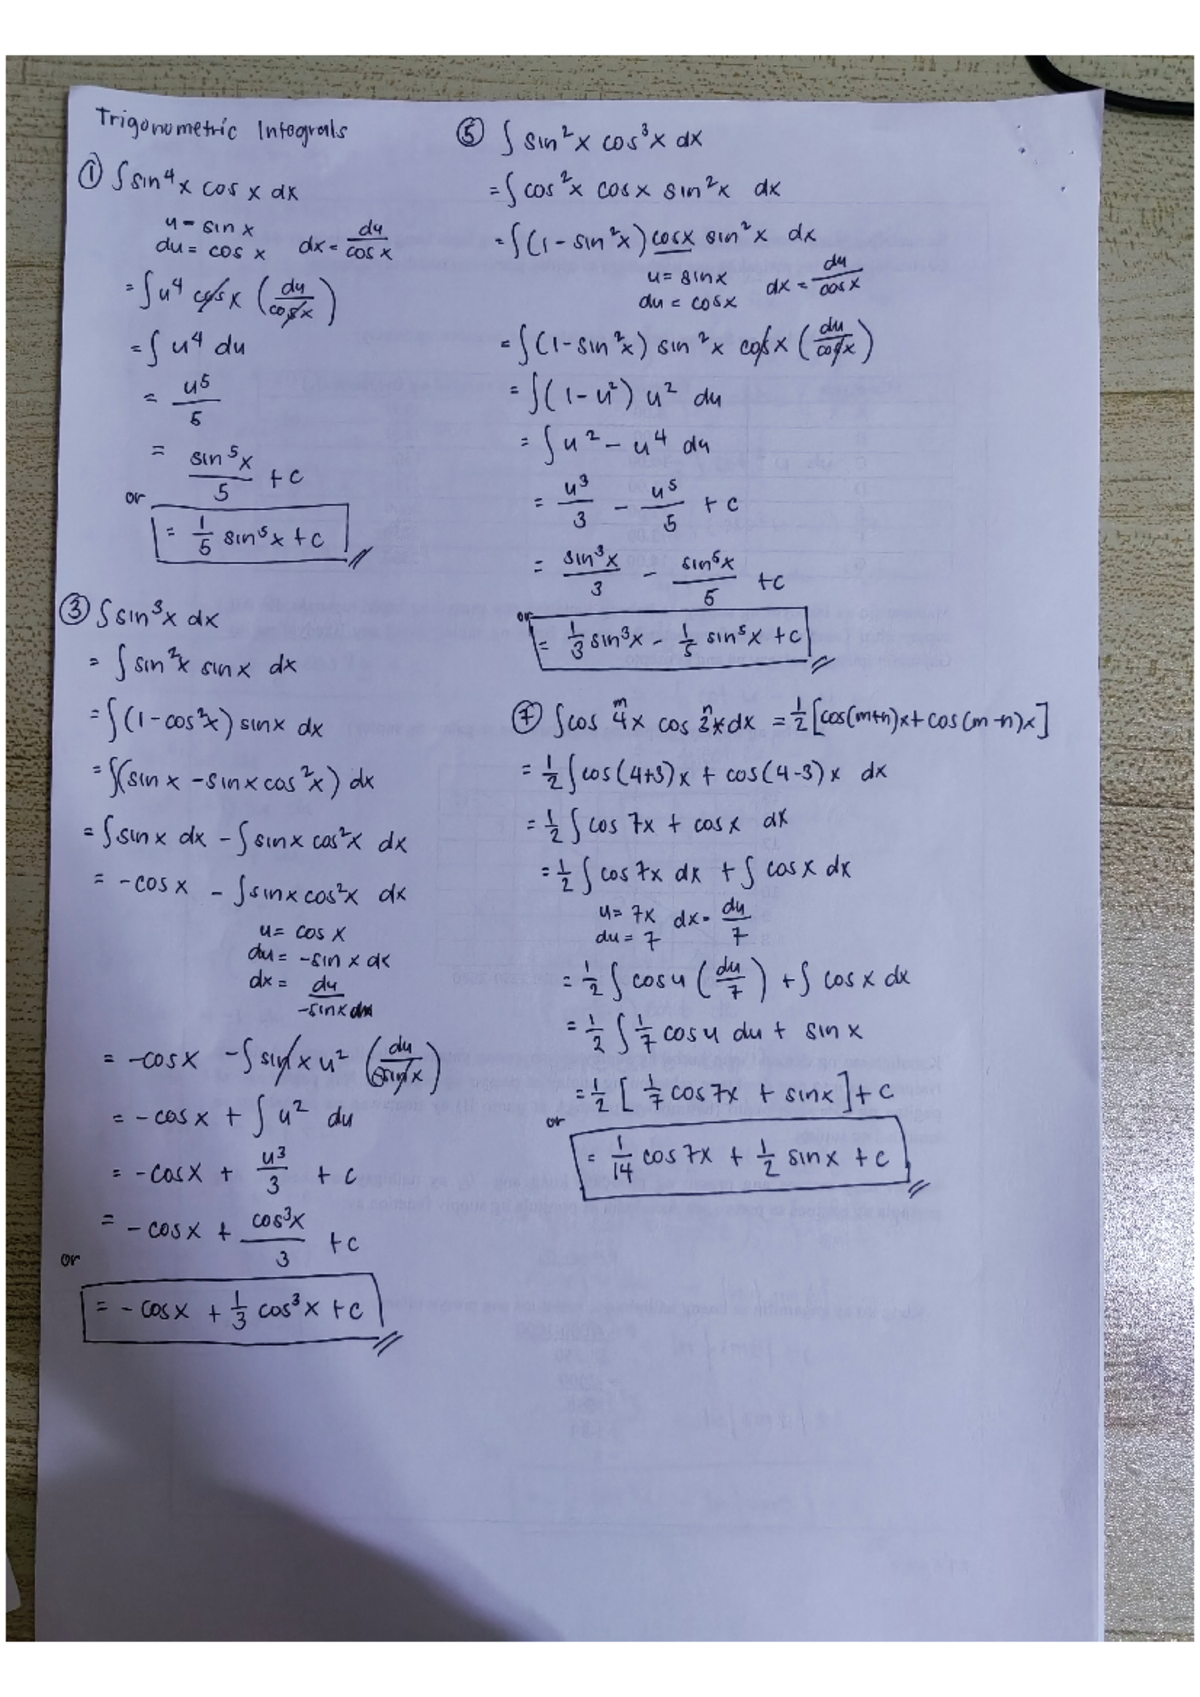 Trigonometric Integrals
① ∫ sin⁴x cos x dx
u = sin x
du = cos x   dx = du/cos x
= ∫ u⁴ cos x (du/cos x)
= ∫ u⁴ du
= u⁵/5
= sin⁵x/5 + c
or
= 1/5 sin⁵x + c
③ ∫ sin³x dx
= ∫ sin²x sin x dx
= ∫ (1 - cos²x) sin x dx
= ∫ (sin x - sin x cos²x) dx
= ∫ sin x dx - ∫ sin x cos²x dx
= -cos x - ∫ sin x cos²x dx
u = cos x
du = -sin x dx
dx = du/-sin x dx
= -cos x - ∫ sin x u² (du/-sin x)
= -cos x + ∫ u² du
= -cos x + u³/3 + c
= -cos x + cos³x/3 + c
or
= -cos x + 1/3 cos³x + c
⑤ ∫ sin²x cos³x dx
= ∫ cos²x cos x sin²x dx
= ∫ (1 - sin²x) cos x sin²x dx
u = sin x   dx = du/cos x
du = cos x
= ∫ (1 - sin²x) sin²x cos x (du/cos x)
= ∫ (1 - u²) u² du
= ∫ u² - u⁴ du
= u³/3 - u⁵/5 + c
= sin³x/3 - sin⁵x/5 + c
or
= 1/3 sin³x - 1/5 sin⁵x + c
m n
⑦ ∫ cos 4x cos 3x dx = 1/2 [cos(m+n)x + cos(m-n)x]
= 1/2 ∫ cos(4+3)x + cos(4-3)x dx
= 1/2 ∫ cos 7x + cos x dx
= 1/2 ∫ cos 7x dx + ∫ cos x dx
u = 7x   dx = du/7
du = 7
= 1/2 ∫ cos u (du/7) + ∫ cos x dx
= 1/2 ∫ 1/7 cos u du + sin x
= 1/2 [1/7 cos 7x + sin x] + c
or
= 1/14 cos 7x + 1/2 sin x + c